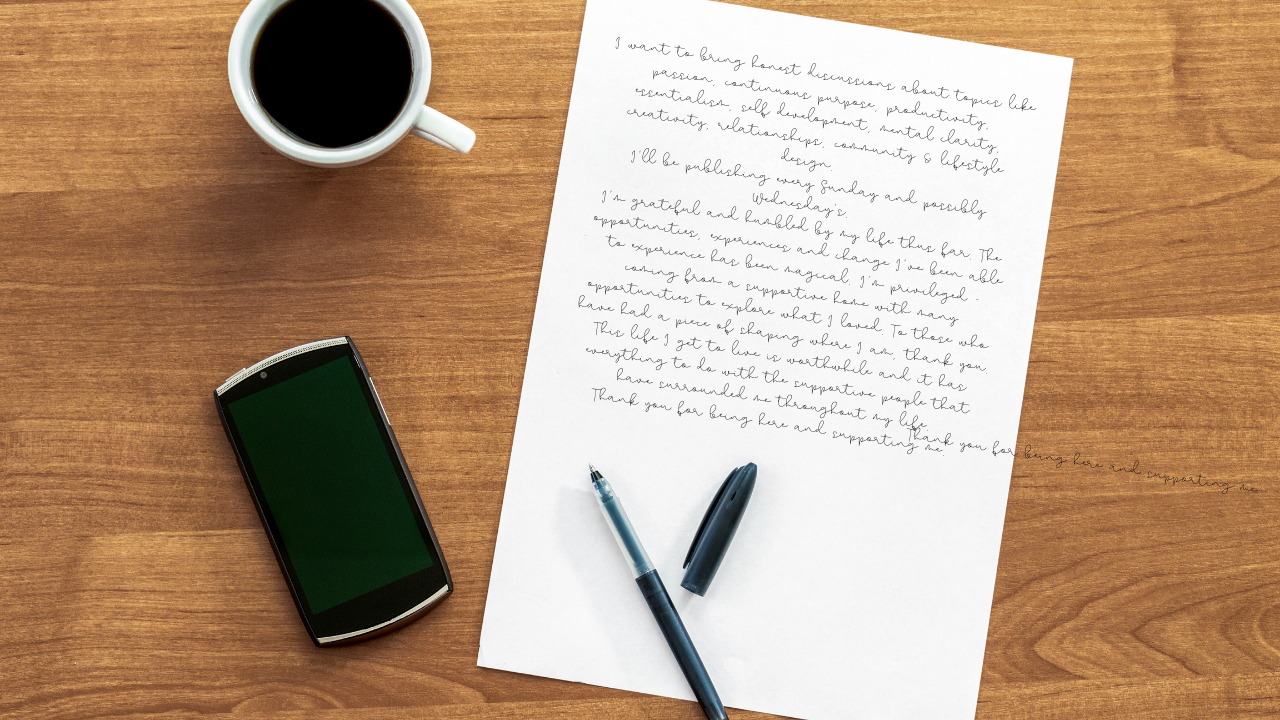 I want to bring honest discussions about topics like
passion, continuous purpose, productivity,
essentialism, self development, mental clarity,
creativity, relationships, community & lifestyle
design.
I'll be publishing every Sunday and possibly
Wednesday's.
I'm grateful and humbled by my life thus far. The
opportunities, experiences and change I've been able
to experience has been magical. I'm privileged -
coming from a supportive home with many
opportunities to explore what I loved. To those who
have had a piece of shaping where I am, thank you.
This life I get to live is worthwhile and it has
everything to do with the supportive people that
have surrounded me throughout my life.
Thank you for being here and supporting me.
Thank you for being here and supporting me.